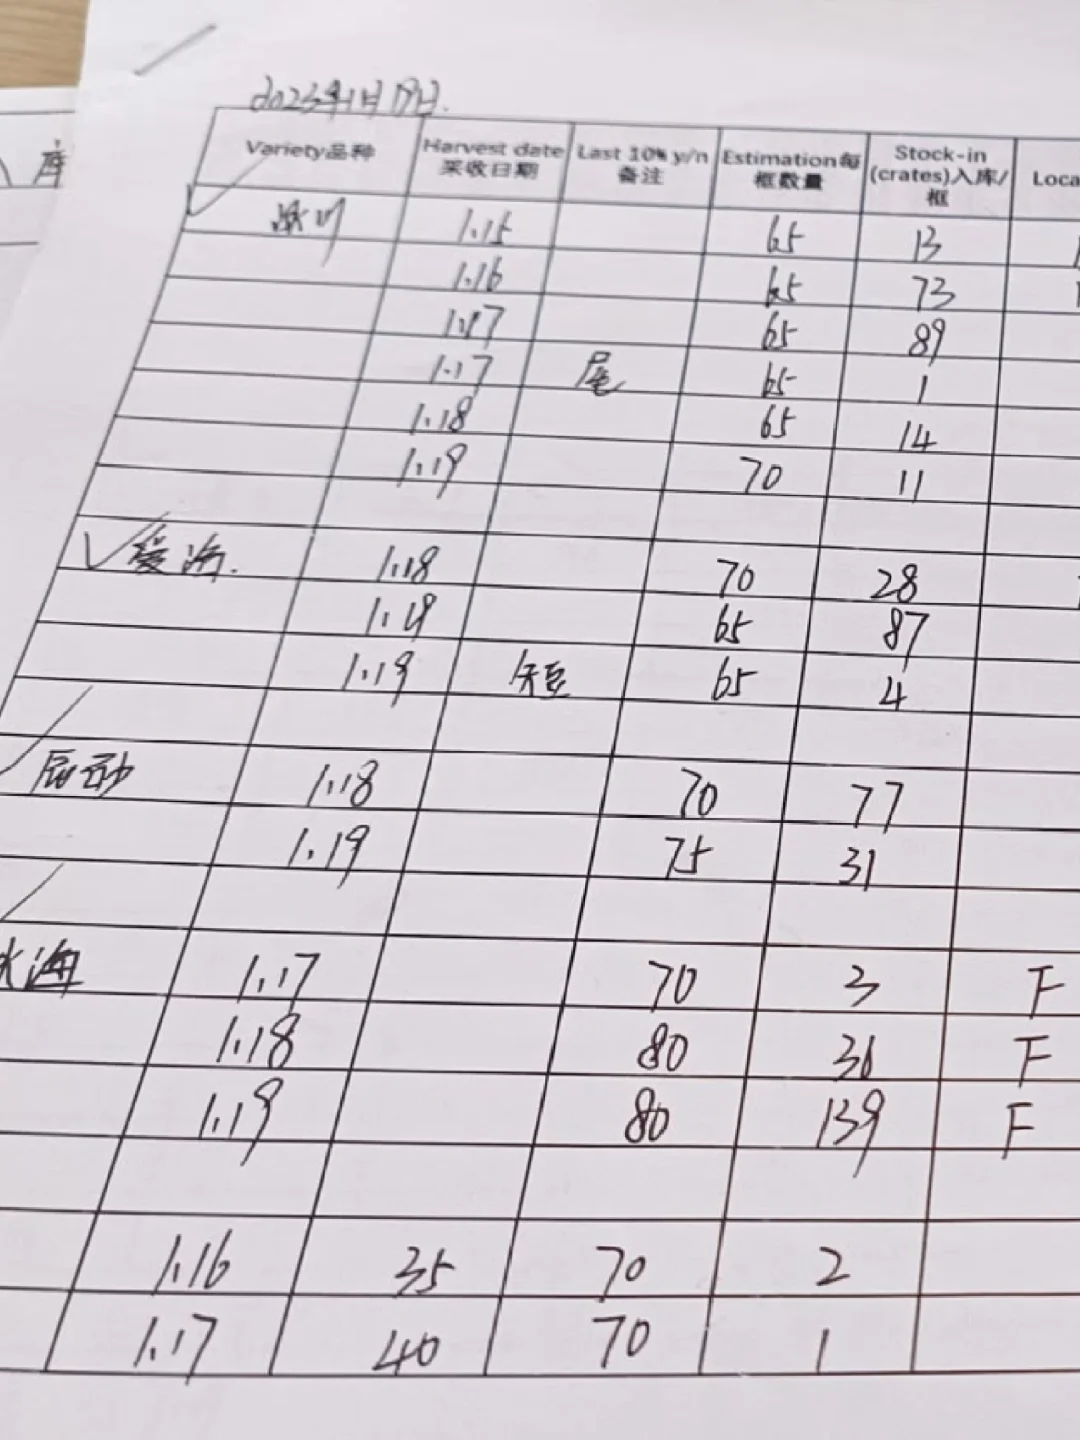 入库
2023年1月19日.
Variety品种 Harvest date采收日期 Last 10% y/n备注 Estimation每框数量 Stock-in (crates)入库/框 Loca
1.15 65 13
1.16 65 73
1.17 65 89
1.17 尾 65 1
1.18 65 14
1.19 70 11
爱海. 1.18 70 28
1.19 65 87
1.19 短 65 4
1.18 70 77
1.19 75 31
海 1.17 70 3 F
1.18 80 36 F
1.19 80 139 F
1.16 35 70 2
1.17 40 70 1